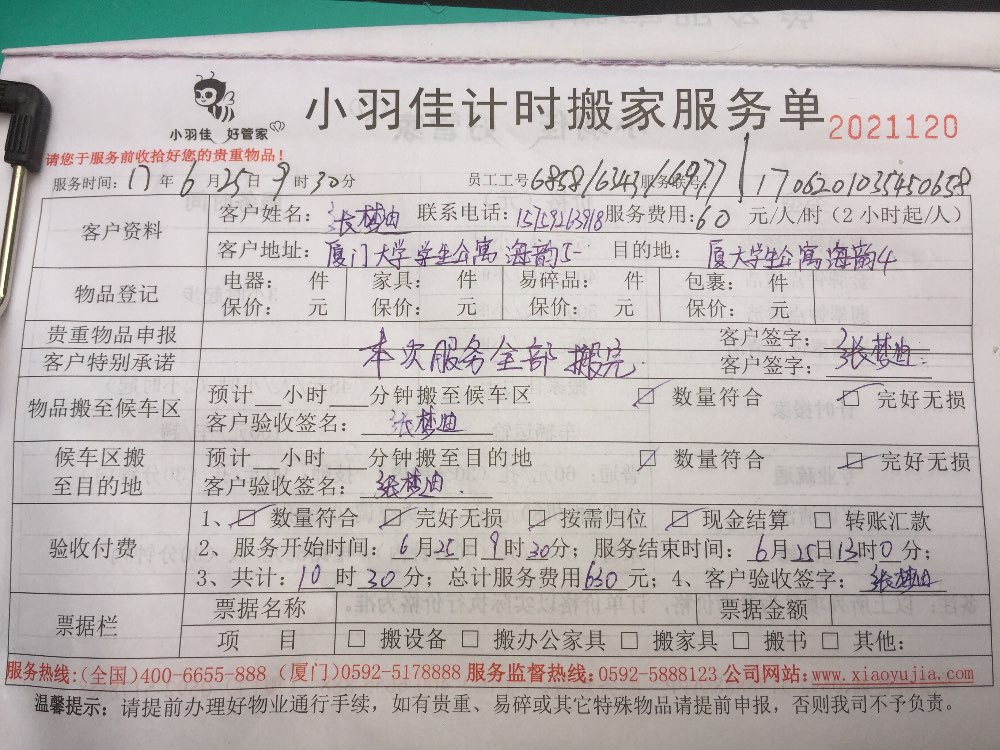 小羽佳 好管家
小羽佳计时搬家服务单
2021120
请您于服务前收拾好您的贵重物品！
服务时间：17年6月25日9时30分 员工工号6858/6343/6977 服务联号：1706201035450658
客户资料
客户姓名：张梦迪 联系电话：15759263918 服务费用：60 元/人/时（2小时起/人）
客户地址：厦门大学学生公寓海韵5 目的地：厦大学生公寓海韵4
物品登记
电器： 件 家具： 件 易碎品： 件 包裹： 件
保价： 元 保价： 元 保价： 元 保价： 元
贵重物品申报 客户签字：张梦迪
客户特别承诺 本次服务全部搬完 客户签字：张梦迪
物品搬至候车区
预计 小时 分钟搬至候车区 ☑ 数量符合 ☑ 完好无损
客户验收签名：张梦迪
候车区搬至目的地
预计 小时 分钟搬至目的地 ☑ 数量符合 ☑ 完好无损
客户验收签名：张梦迪
验收付费
1、☑ 数量符合 ☑ 完好无损 ☑ 按需归位 ☑ 现金结算 □ 转账汇款
2、服务开始时间：6月25日9时30分；服务结束时间：6月25日13时0分；
3、共计：10时30分；总计服务费用630元；4、客户验收签字：张梦迪
票据栏
票据名称 票据金额
项 目 □ 搬设备 □ 搬办公家具 □ 搬家具 □ 搬书 □ 其他：
服务热线：(全国)400-6655-888 (厦门)0592-5178888 服务监督热线：0592-5888123 公司网站：www.xiaoyujia.com
温馨提示：请提前办理好物业通行手续，如有贵重、易碎或其它特殊物品请提前申报，否则我司不予负责。